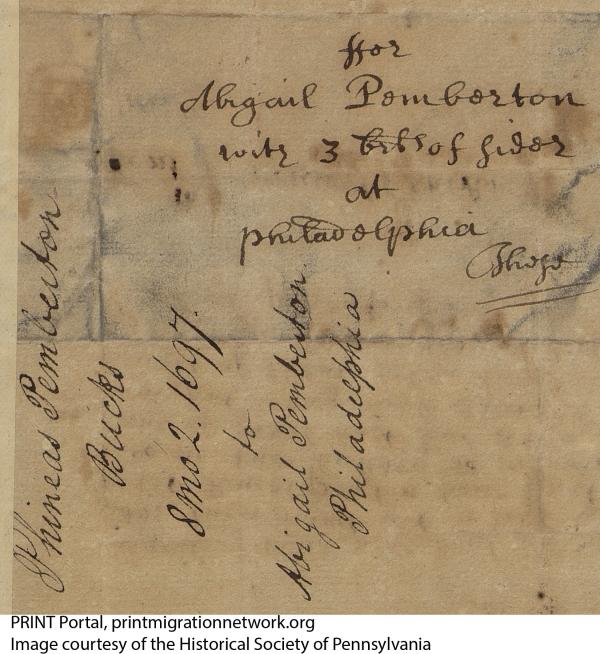 ffor
Abigail Pemberton
with 3 bbls of sider
at
philadelphia
These
Phineas Pemberton
Bucks
8 mo 2. 1697.
to
Abigail Pemberton
Philadelphia
PRINT Portal, printmigrationnetwork.org
Image courtesy of the Historical Society of Pennsylvania